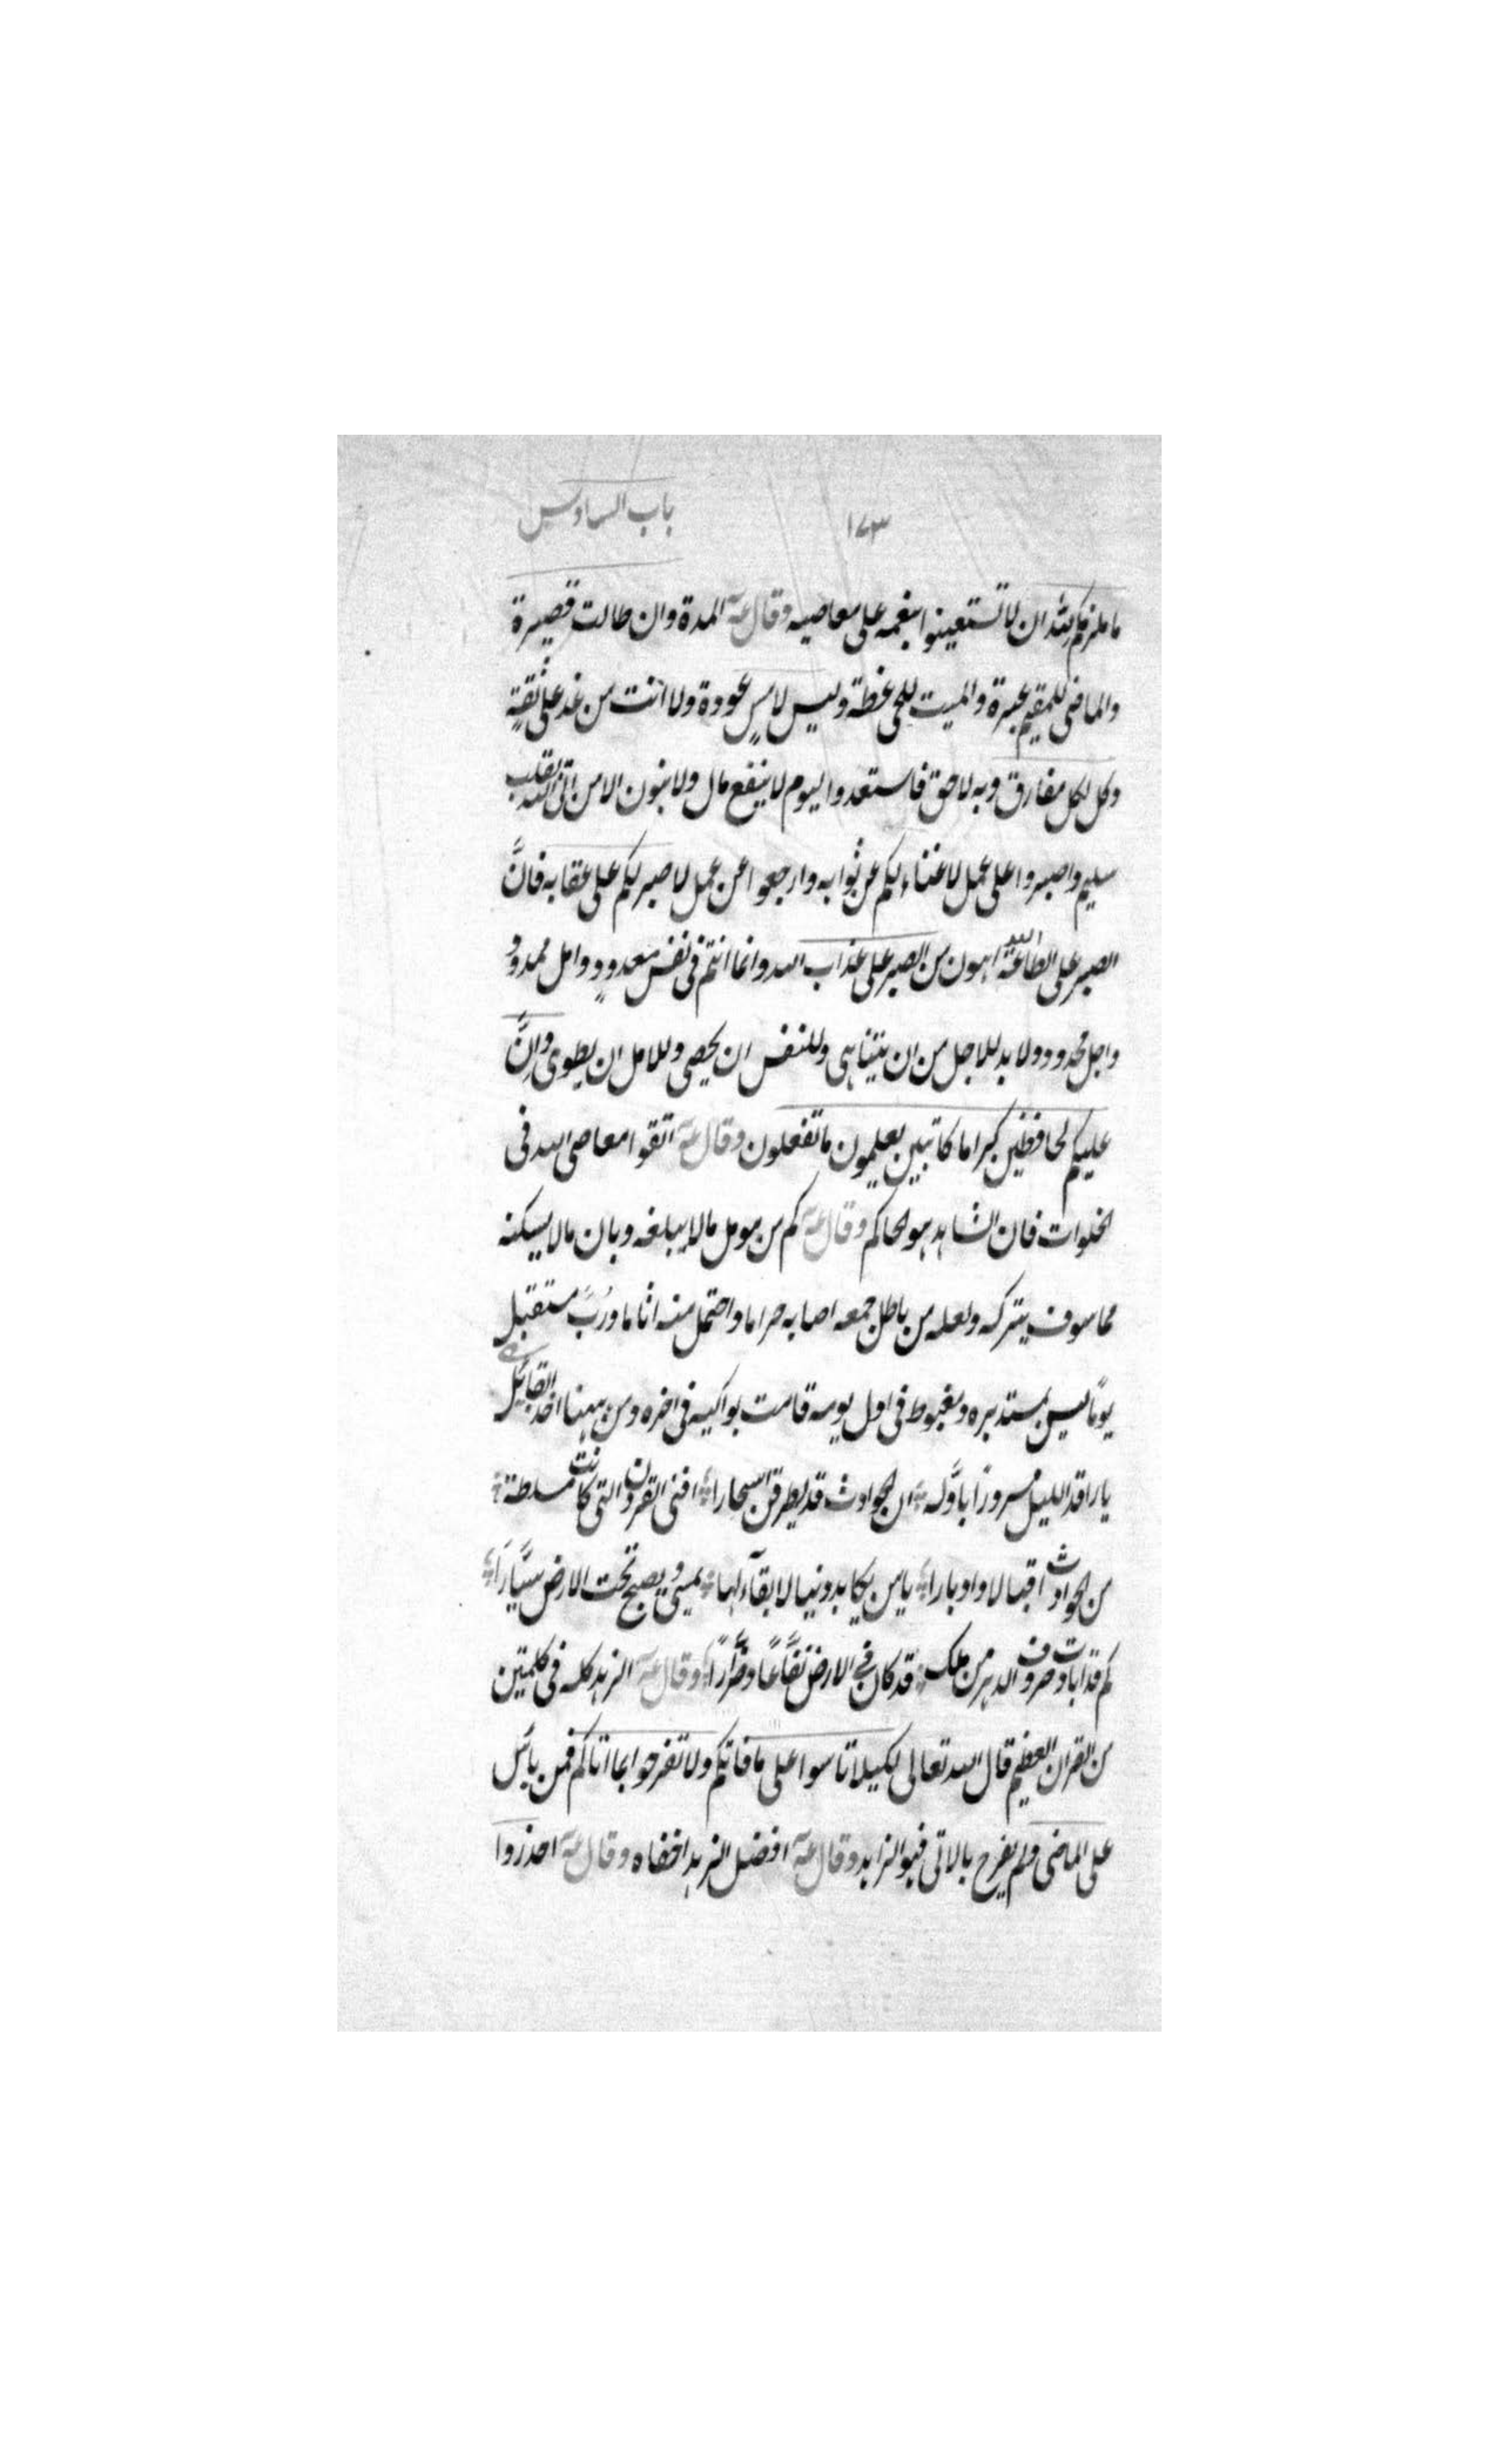 ١٧٣ باب السادس
ما يلزمكم لله ان لا تستعينوا بنعمه على معاصيه وقال عـ المدة وان طالت قصيرة
والماضى للمقيم عبرة والميت للحى عظة وليس لامسٍ عودة ولا انت من غد على ثقةٍ
وكل لكل مفارق وبه لاحق فاستعدوا ليوم لا ينفع مال ولا بنون الا من اتى الله بقلب
سليم واصبروا على عمل لا غناء لكم عن ثوابه وارجعوا عن عمل لا صبر لكم على عقابه فانَّ
الصبر على الطاعة الله اهون من الصبر على عذاب الله وانما انتم فى نفس معدودٍ وامل ممدود
واجل محدود ولا بد للاجل من ان يتناهى وللنفس ان يحصى وللامل ان يطوى وانَّ
عليكم لحافظين كراما كاتبين يعلمون ما تفعلون وقال عـ اتقوا معاصى الله فى
الخلوات فان الشاهد هو الحاكم وقال عـ كم من مومل مالا يبلغه وبان مالا يسكنه
مما سوف يتركه ولعله من باطل جمعه اصابه حراما واحتمل منه اثاما وربَّ مستقبل
يومًا ليس بمستدبره ومغبوط فى اول يومه قامت بواكيه فى اخره ومن ههنا اخذ القائل
يا راقد الليل مسرورًا باوَّله ان الحوادث قد يطرقن اسحارا افنى القرون التى كانت مسلطة
من الحوادث اقبالا وادبارا يا من يكابد دنيا لا بقآء لها يمسى ويصبح تحت الارض سيَّارًا
كم قد ابادت صروف الدهر من ملك قد كان فى الارض نفَّاعًا وضَّرارًا وقال عـ الزهد كله فى كلمتين
من القران العظيم قال الله تعالى لكيلا تاسوا على ما فاتكم ولا تفرحوا بما اتاكم فمن لم يائس
على الماضى ولم يفرح بالاتى فهو الزاهد وقال عـ افضل الزهد اخفاه وقال عـ احذروا